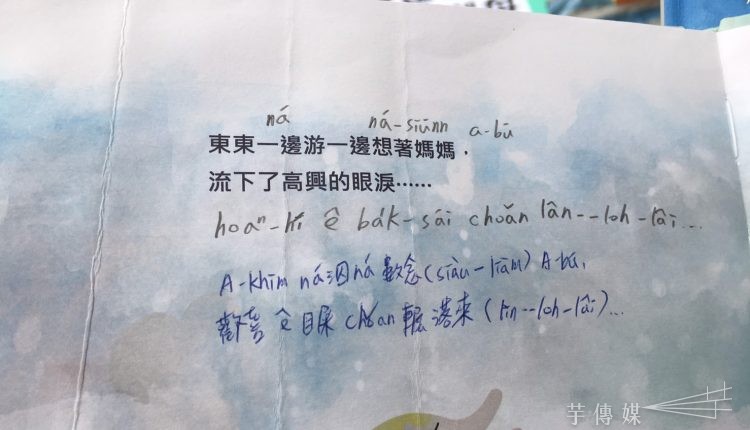 ná ná-siūnn a-bú
東東一邊游一邊想著媽媽，
流下了高興的眼淚……
hoaⁿ-hí ê ba̍k-sái choân lân--loh-lâi...
A-khîm ná泅ná數念(siàu-liām) A-bú,
歡喜ê目屎choân輾落來(lìn--loh-lâi)...
芋傳媒